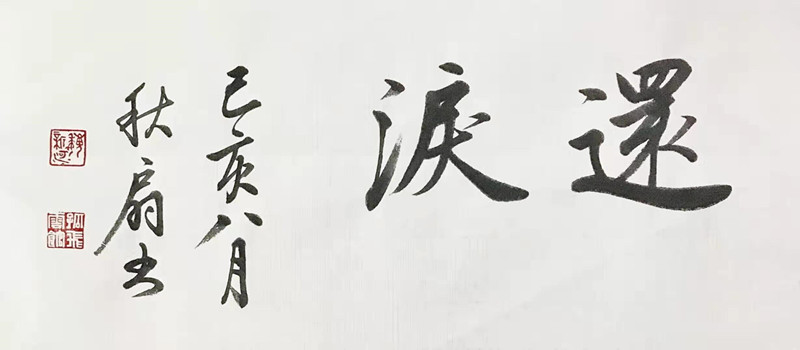 還淚
己亥八月
秋扇书